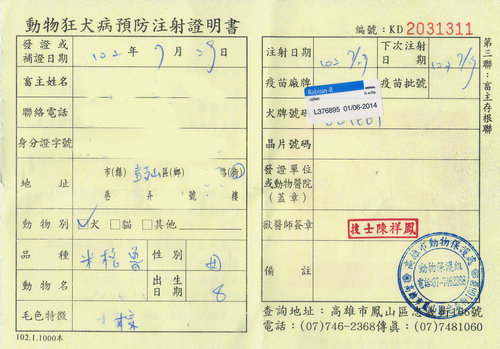 動物狂犬病預防注射證明書
發證或
補證日期 102年7月29日
畜主姓名
聯絡電話
身分證字號
地址 市(縣)鼓山區(鄉) 路(街)
巷 弄 號 樓
動物別 犬 貓 其他
品種 米格魯 性別 母
動物名 出生日期 8
毛色特徵 棕
102.1.1000本
編號：KD 2031311
注射日期 102 7/29 下次注射日期
疫苗廠牌 疫苗批號
Rabisin-R
L376895 01/06-2014
犬牌號碼
晶片號碼
發證單位
或動物醫院
(蓋章)
獸醫師簽章 技士陳祥鳳
備註
高雄市動物保護處
動物保護組
電話:07-7462368
查詢地址：高雄市鳳山區忠義街166號
電話：(07)746-2368傳真：(07)7481060
第三聯：畜主存根聯